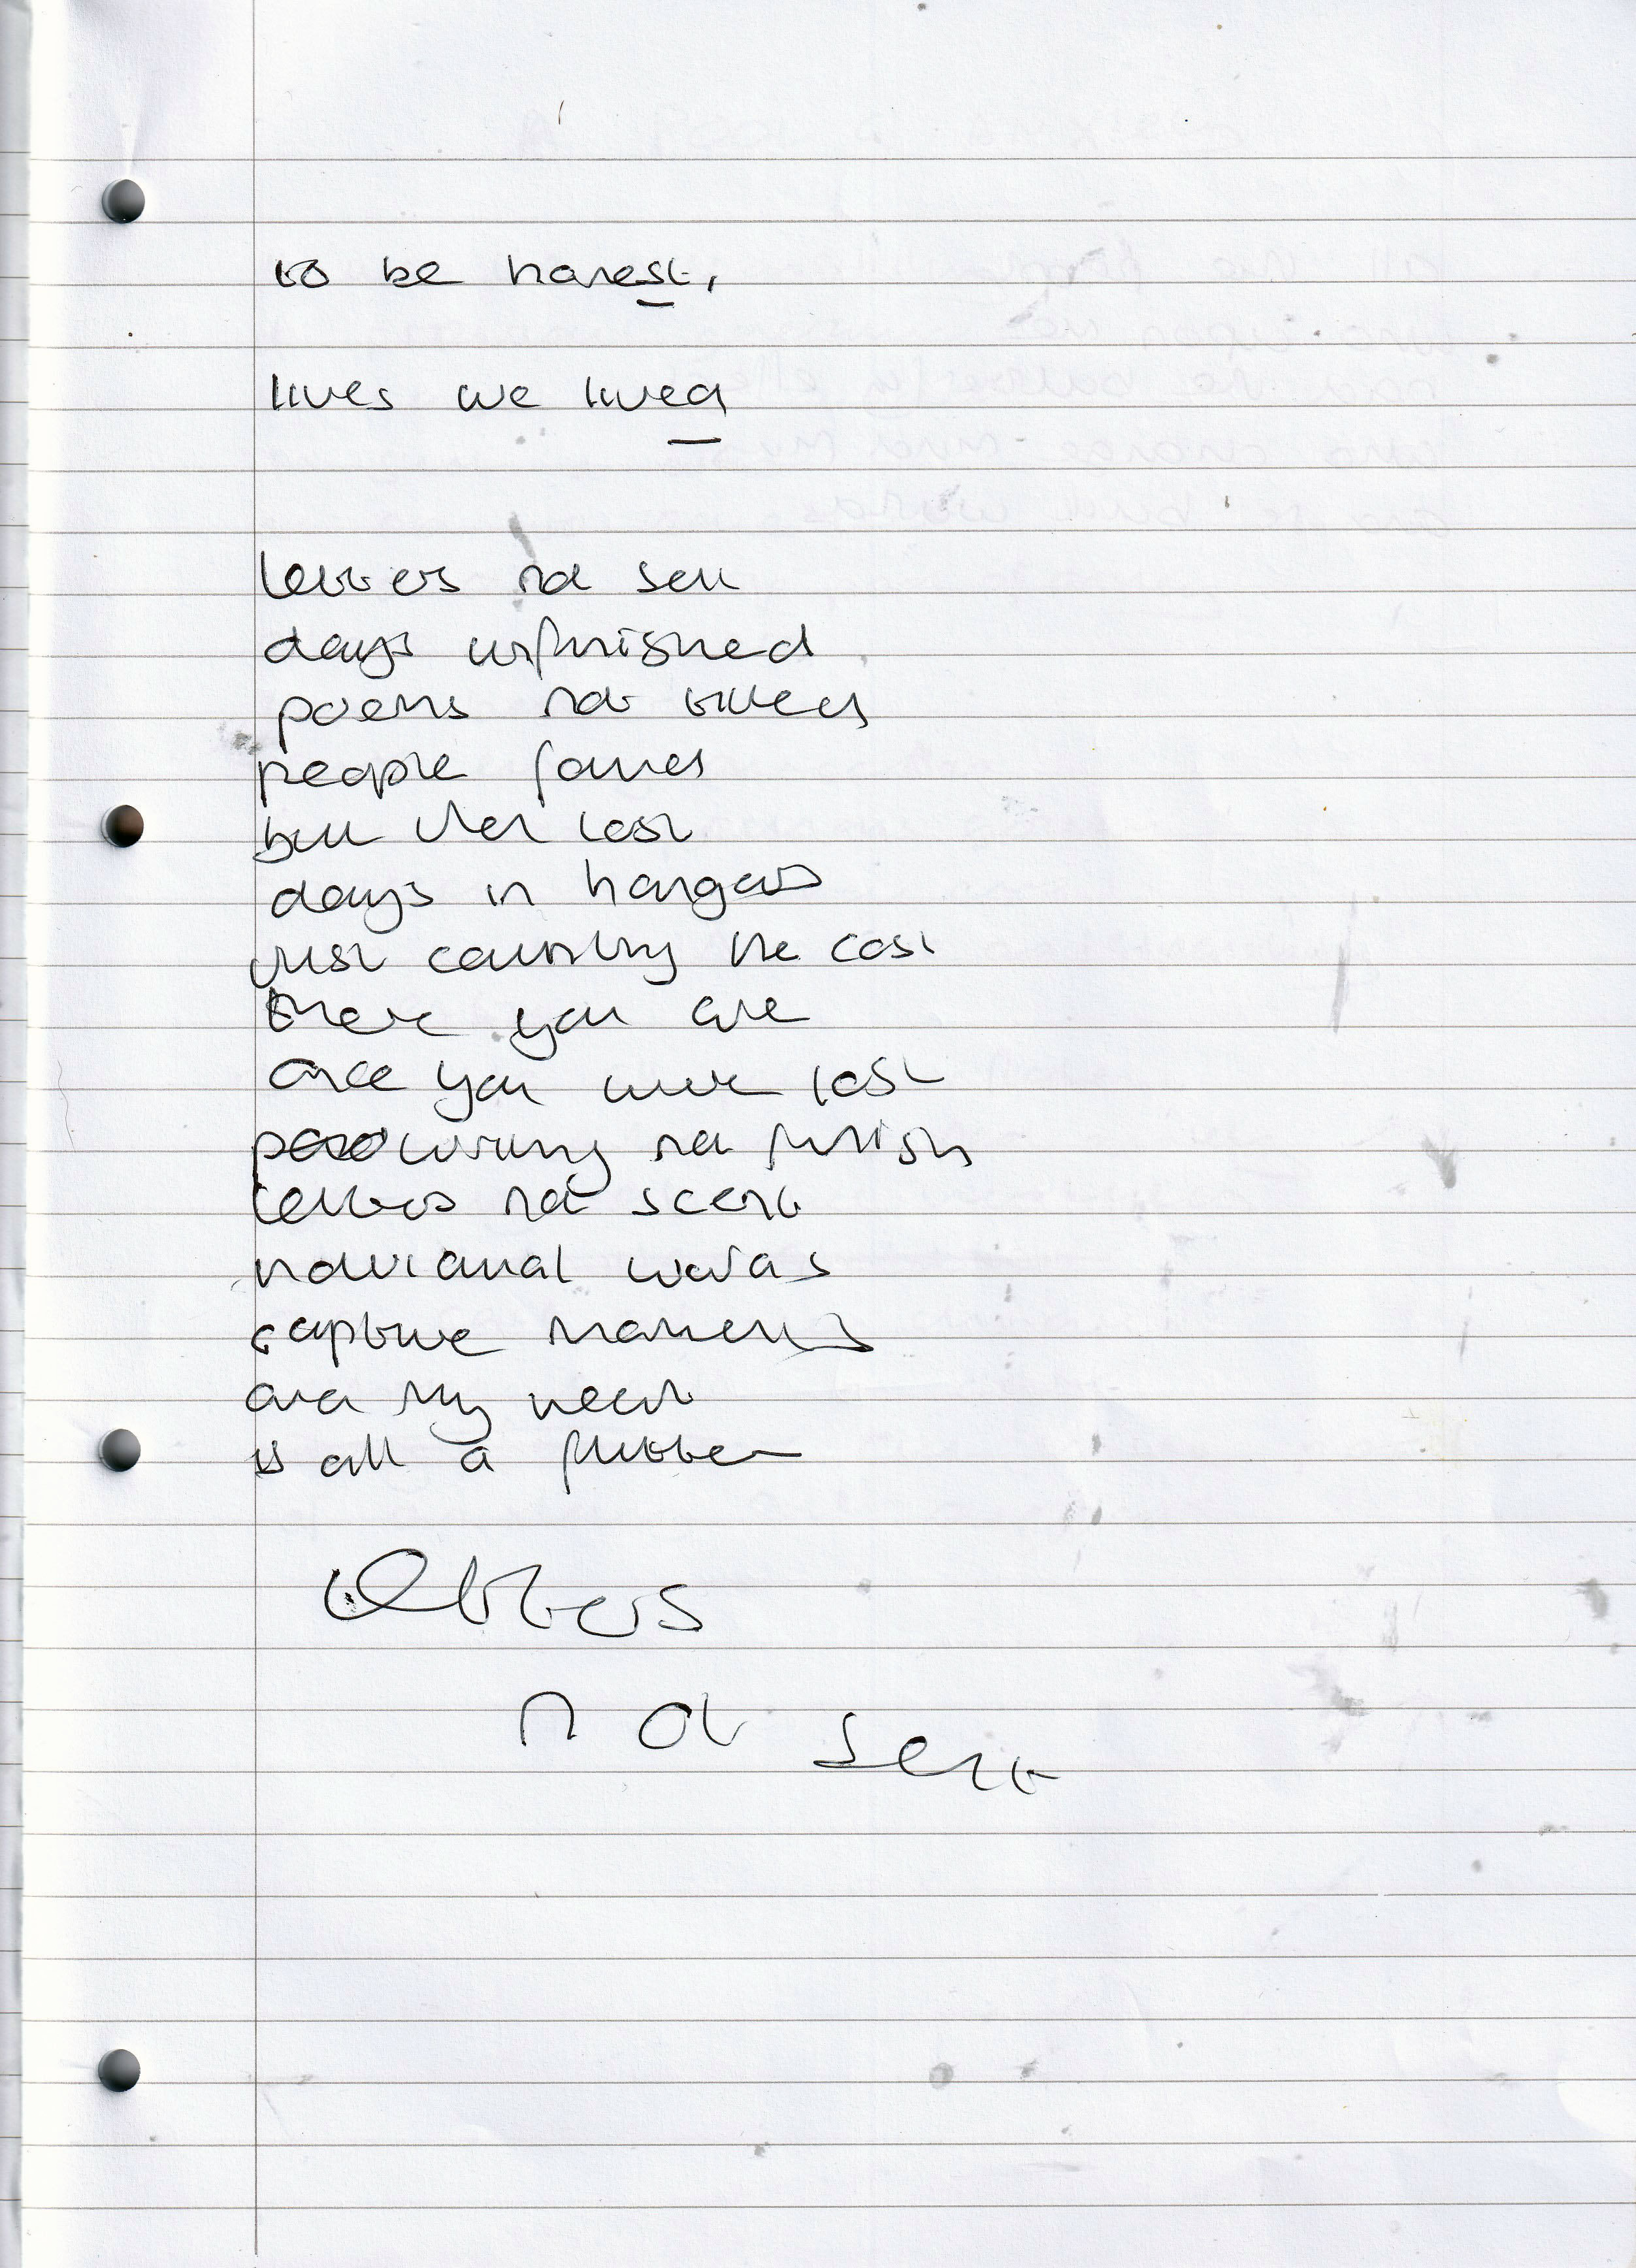 to be honest,
lives we lived
letters not sent
days unfinished
poems not titled
people found
but then lost
days in hangars
just counting the cost
there you are
once you were lost
touring not finish
letters not scent
individual words
capture moments
and my heart
is all a flutter
letters
not sent